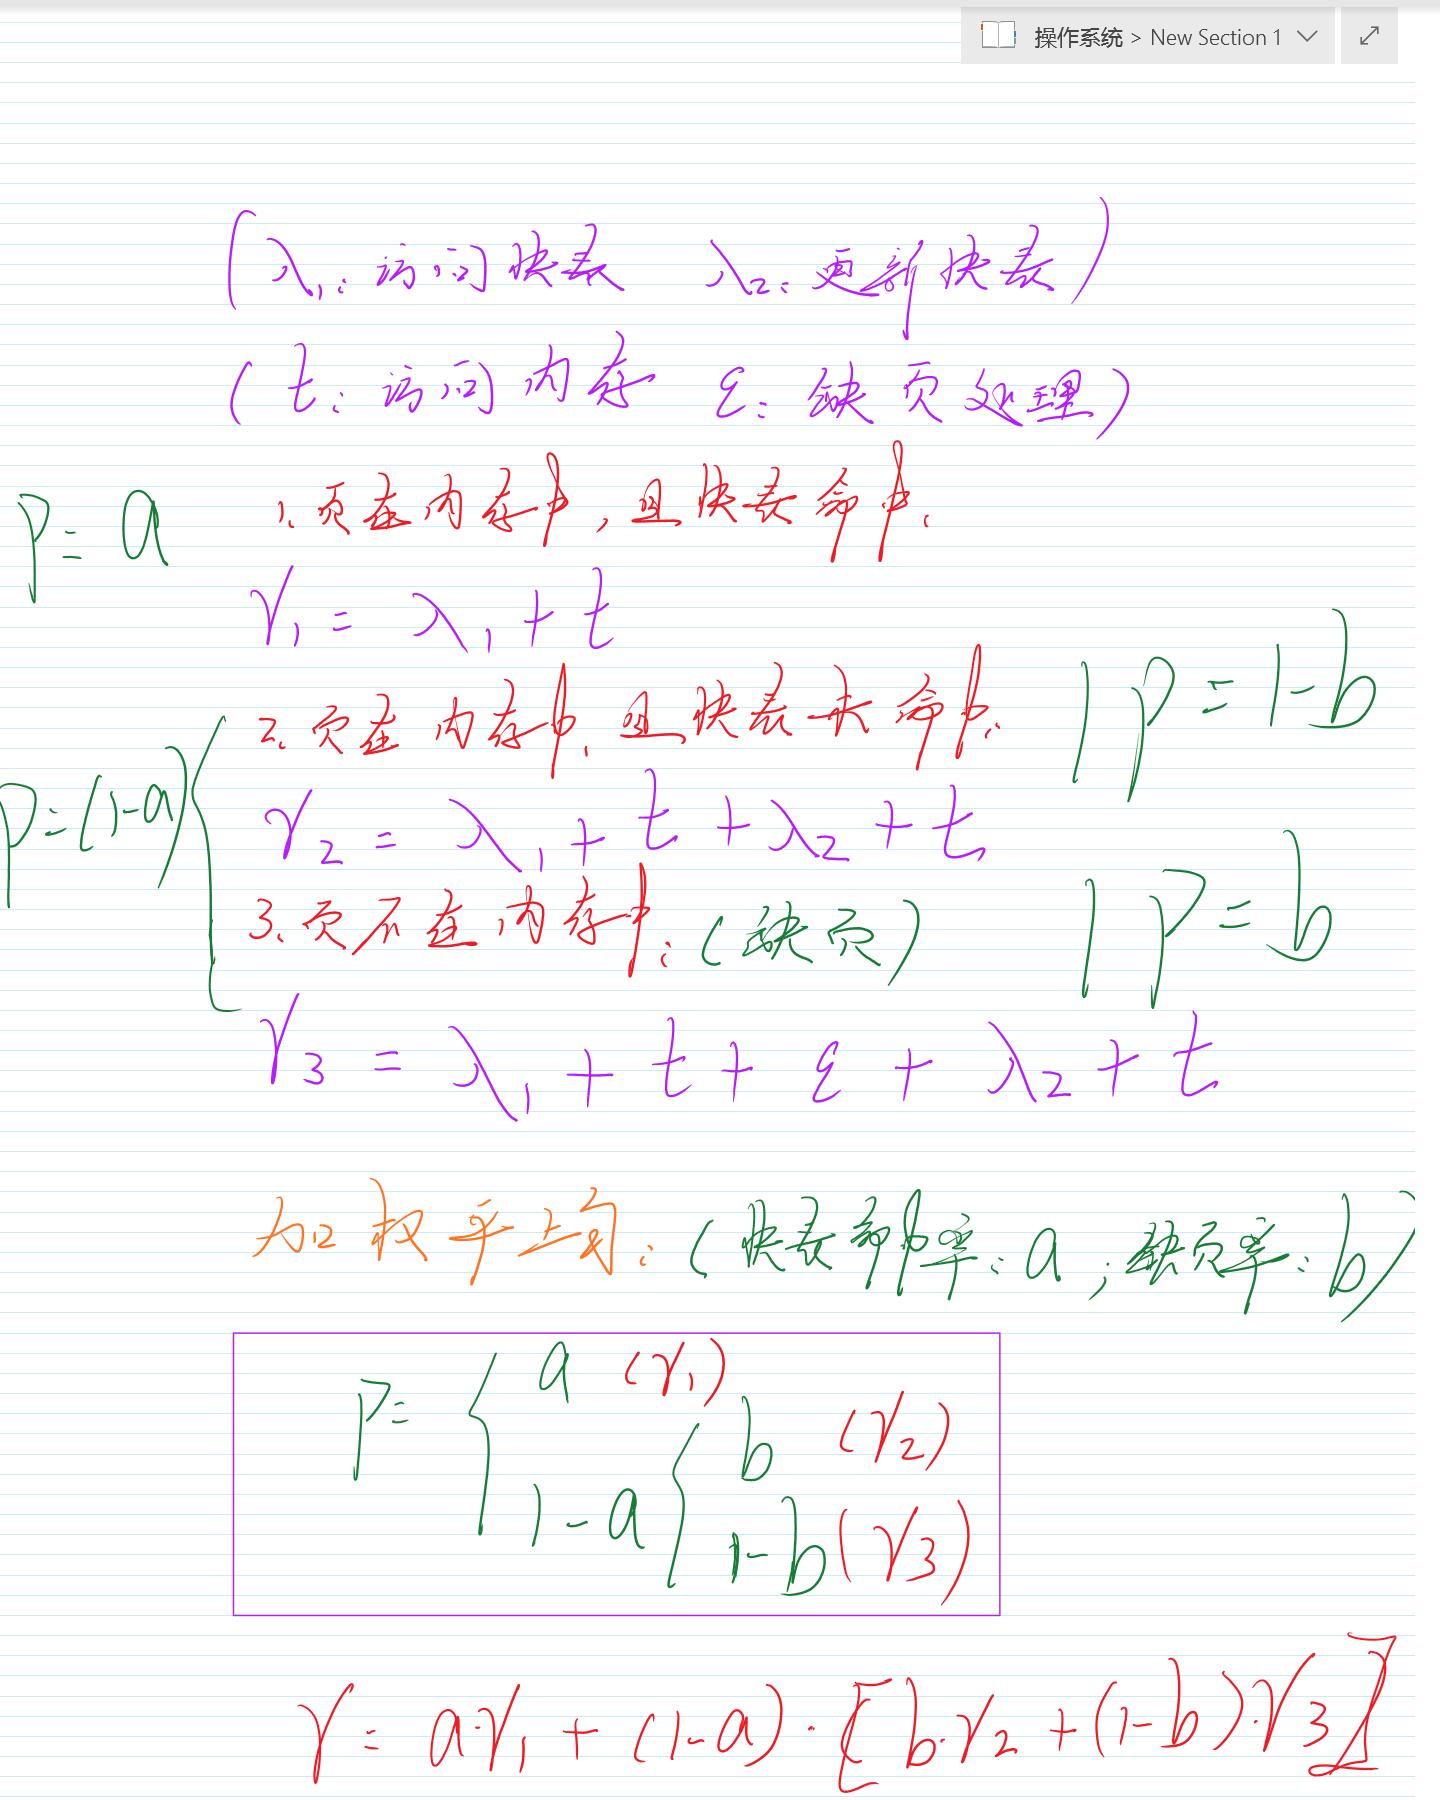 操作系统 > New Section 1
(λ₁: 访问快表 λ₂: 更新快表)
(t: 访问内存 ε: 缺页处理)
P = a 1. 页在内存中, 且快表命中.
γ₁ = λ₁ + t
2. 页在内存中, 且快表未命中. | P = 1-b
P = (1-a) { γ₂ = λ₁ + t + λ₂ + t
3. 页不在内存中: (缺页) | P = b
γ₃ = λ₁ + t + ε + λ₂ + t
加权平均: (快表命中率: a ; 缺页率: b)
P = { a (γ₁)
b (γ₂)
1-a { 1-b (γ₃)
γ = a·γ₁ + (1-a)·[b·γ₂ + (1-b)·γ₃]